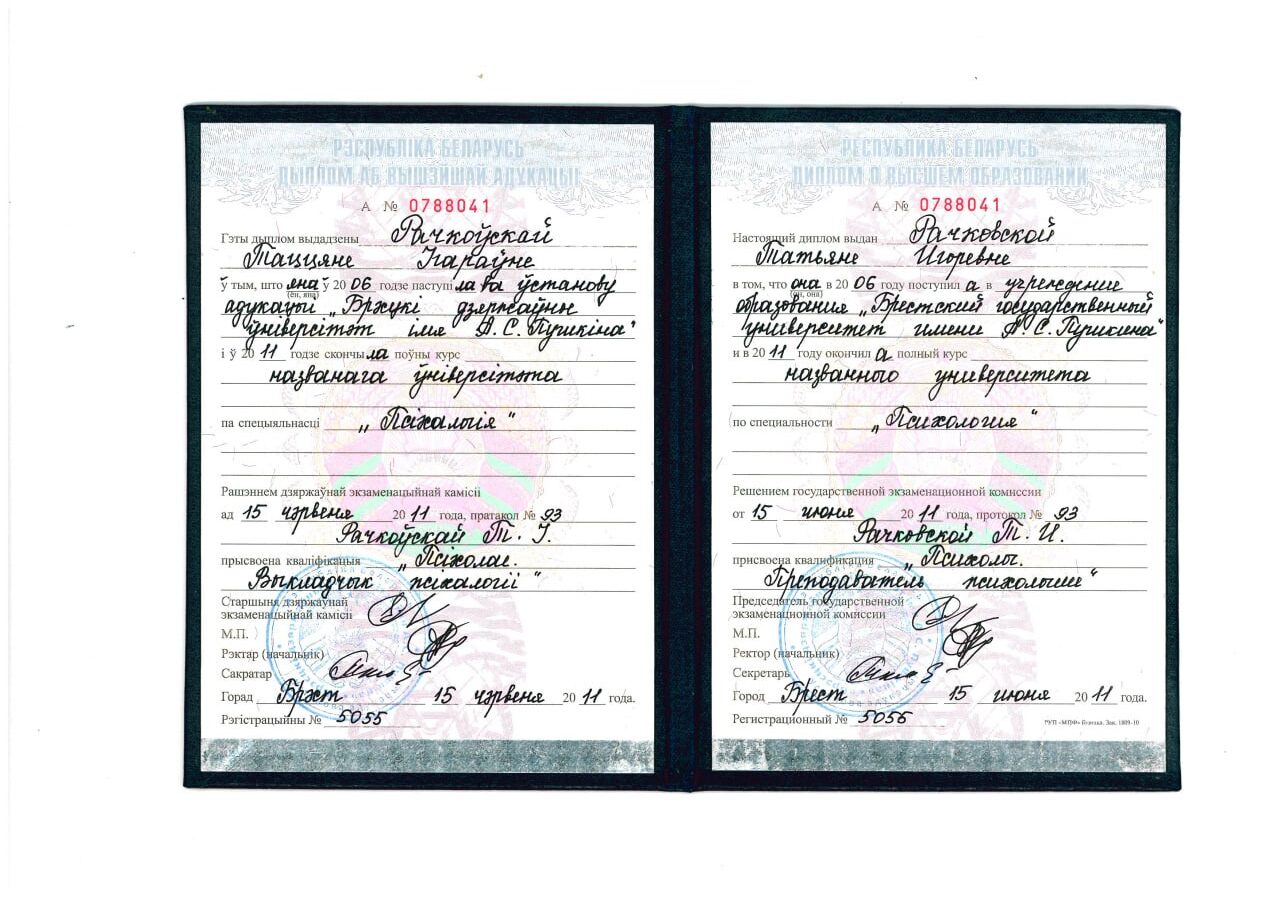 РЭСПУБЛІКА БЕЛАРУСЬ
ДЫПЛОМ АБ ВЫШЭЙШАЙ АДУКАЦЫІ
А № 0788041
Гэты дыплом выдадзены Рачкоўскай
Таццяне Ігараўне
ў тым, што яна ў 2006 годзе паступіла ва ўстанову
(ён, яна)
адукацыі „Брэсцкі дзяржаўны
ўніверсітэт імя А. С. Пушкіна"
і ў 2011 годзе скончыла поўны курс
названага ўніверсітэта
па спецыяльнасці „Псіхалогія"
Рашэннем дзяржаўнай экзаменацыйнай камісіі
ад 15 чэрвеня 2011 года, пратакол № 93
Рачкоўскай Т. І.
прысвоена кваліфікацыя „Псіхолаг.
Выкладчык псіхалогіі"
Старшыня дзяржаўнай
экзаменацыйнай камісіі
М.П.
Рэктар (начальнік)
Сакратар
Горад Брэст 15 чэрвеня 2011 года.
Рэгістрацыйны № 5055
РЕСПУБЛИКА БЕЛАРУСЬ
ДИПЛОМ О ВЫСШЕМ ОБРАЗОВАНИИ
А № 0788041
Настоящий диплом выдан Рачковской
Татьяне Игоревне
в том, что она в 2006 году поступила в учреждение
(он, она)
образования „Брестский государственный
университет имени А. С. Пушкина"
и в 2011 году окончила полный курс
названного университета
по специальности „Психология"
Решением государственной экзаменационной комиссии
от 15 июня 2011 года, протокол № 93
Рачковской Т. И.
присвоена квалификация „Психолог.
Преподаватель психологии"
Председатель государственной
экзаменационной комиссии
М.П.
Ректор (начальник)
Секретарь
Город Брест 15 июня 2011 года.
Регистрационный № 5055